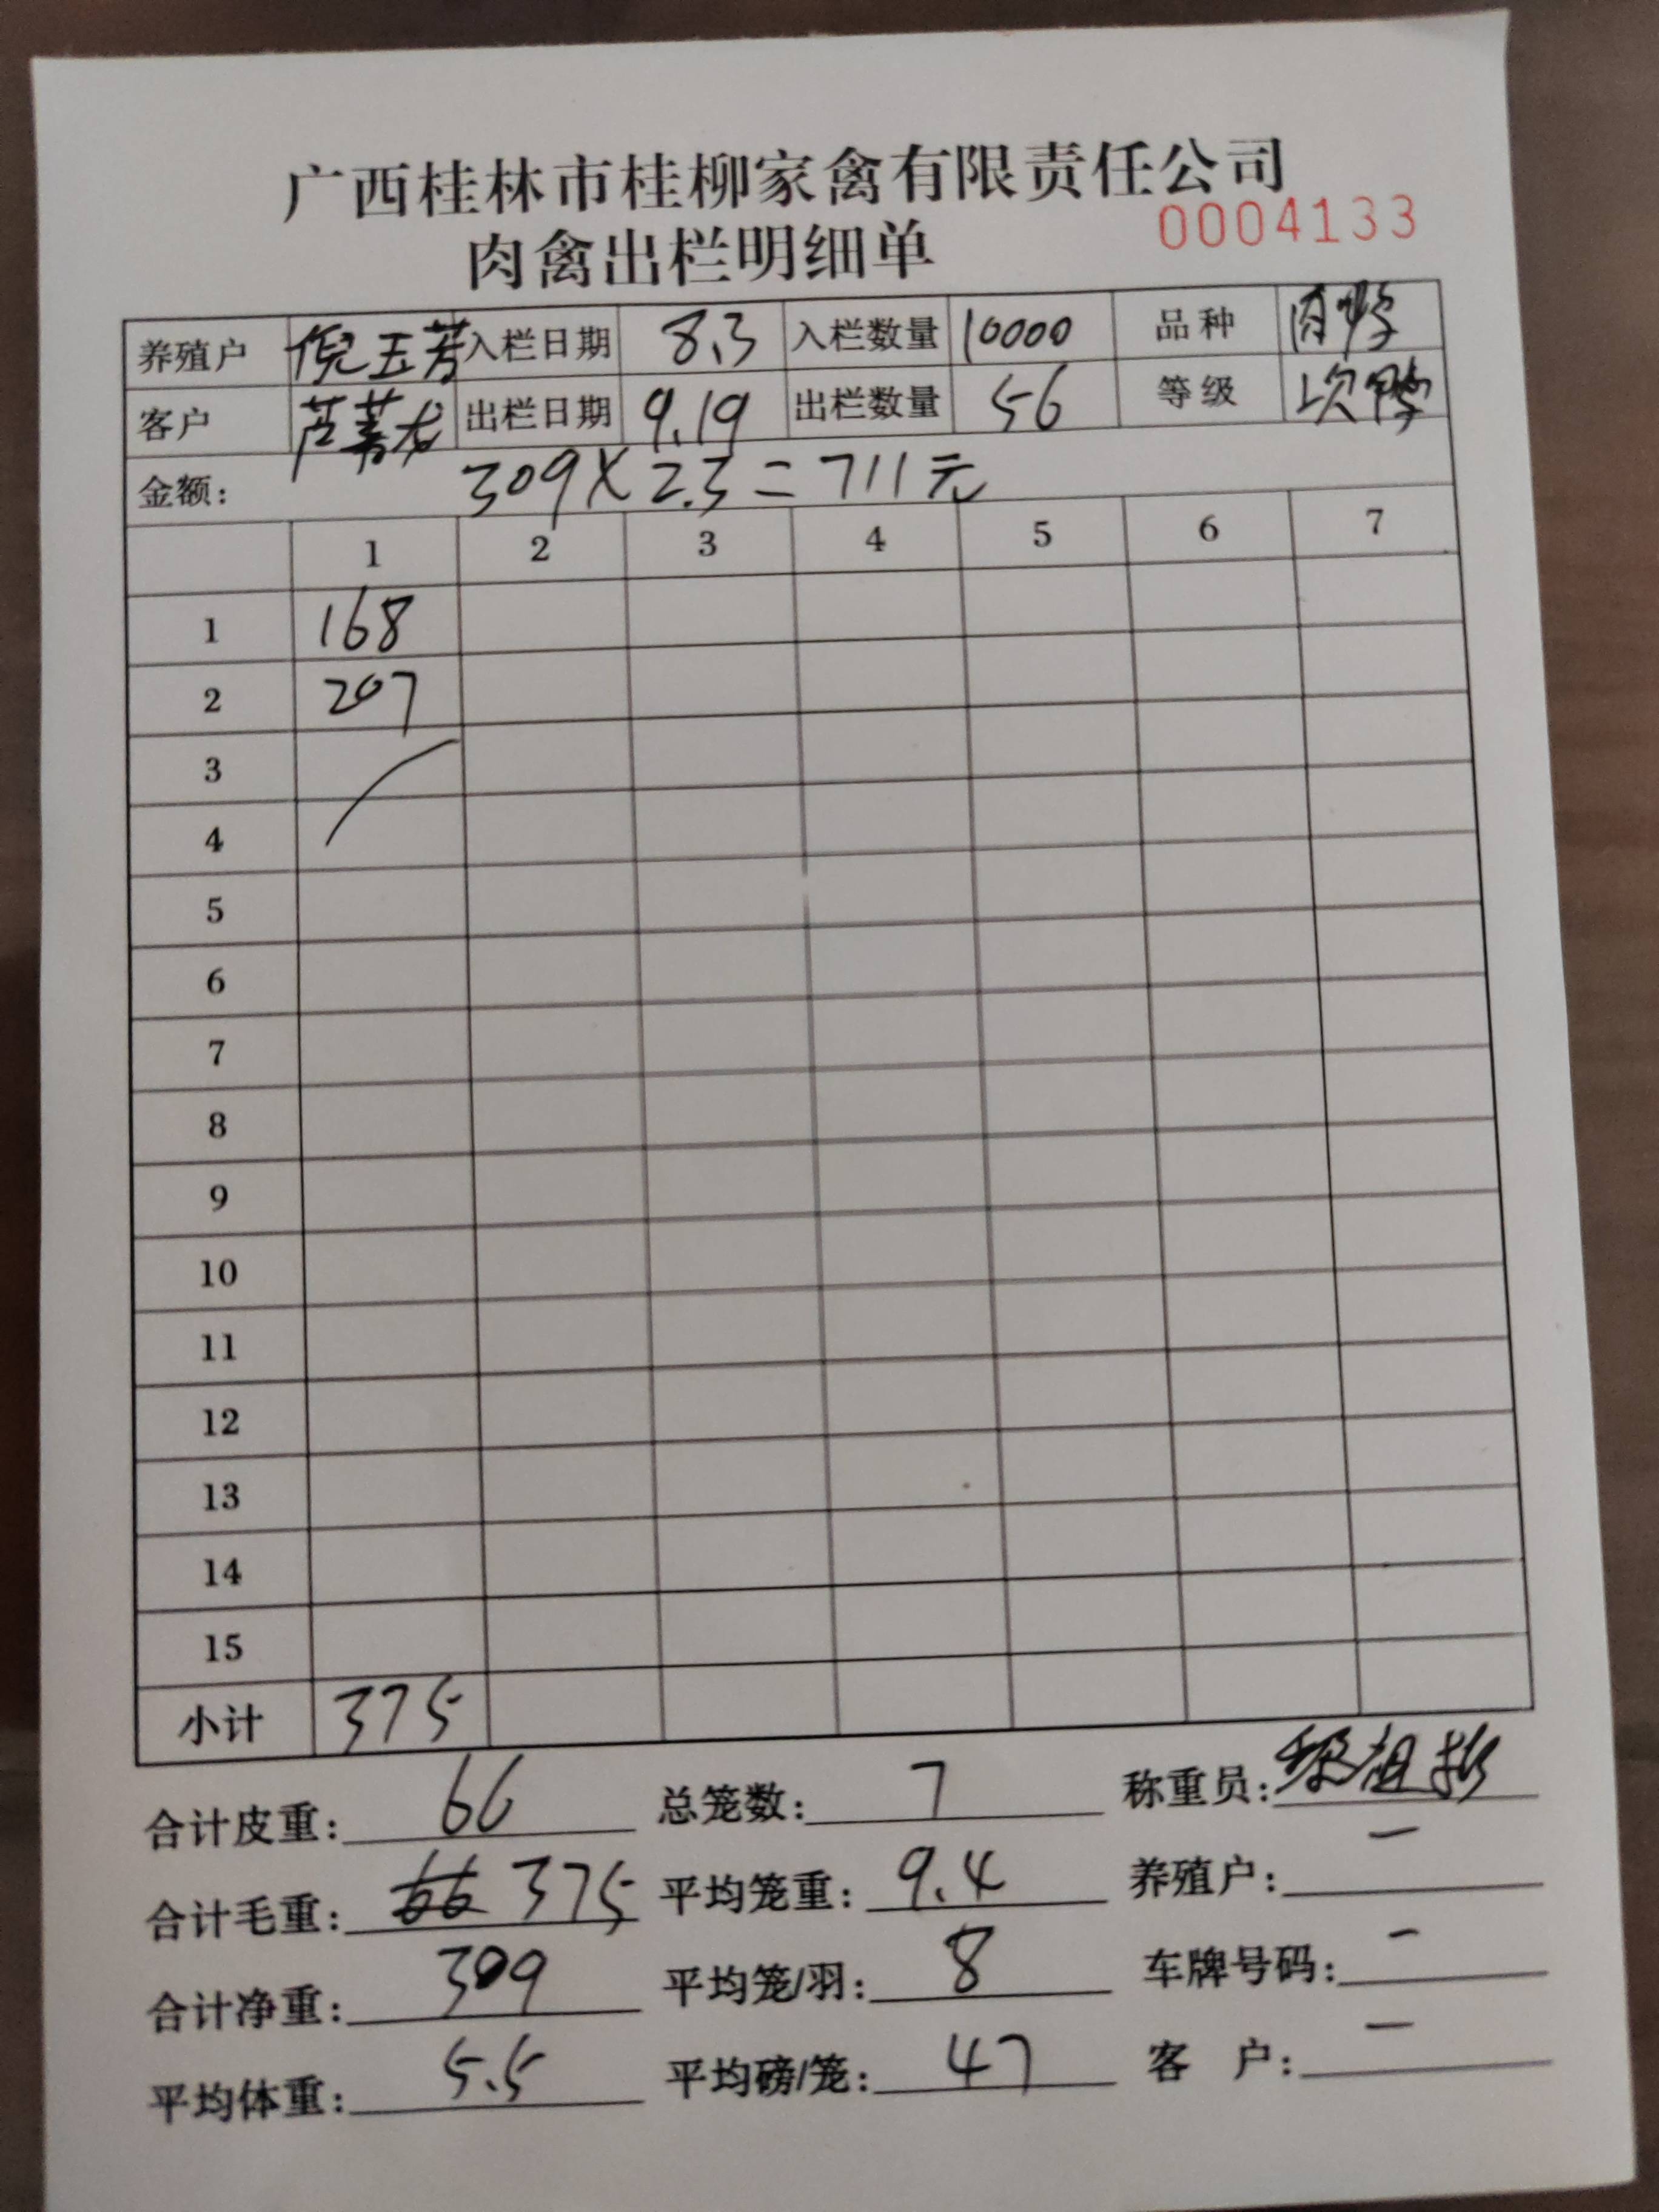 广西桂林市桂柳家禽有限责任公司
肉禽出栏明细单 0004133
养殖户 倪五芳 入栏日期 8.3 入栏数量 10000 品种 肉鸭
客户 出栏日期 9.19 出栏数量 56 等级 次鸭
金额: 309×2.3=711元
1 2 3 4 5 6 7
1 168
2 207
3
4
5
6
7
8
9
10
11
12
13
14
15
小计 375
合计皮重: 66 总笼数: 7 称重员:
合计毛重: 375 平均笼重: 9.4 养殖户: 一
合计净重: 309 平均笼/羽: 8 车牌号码: 一
平均体重: 5.5 平均磅/笼: 47 客 户: 一